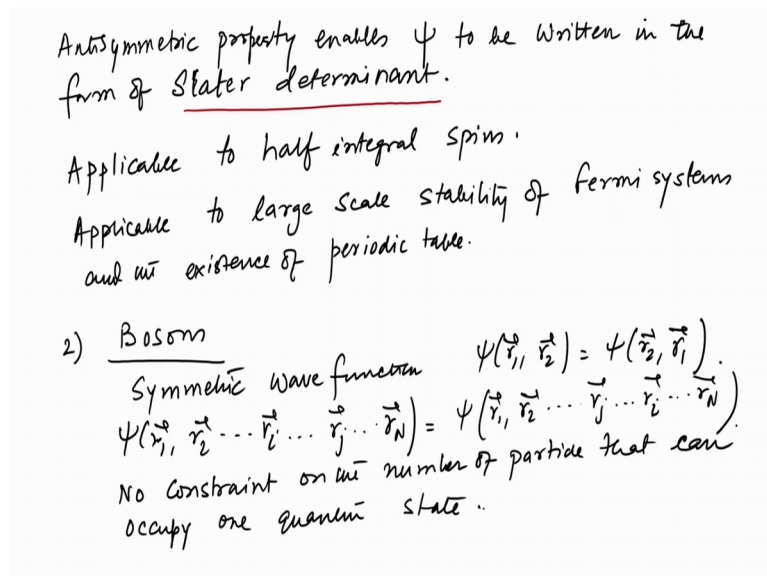 Antisymmetric property enables ψ to be written in the
form of Slater determinant.
Applicable to half integral spins.
Applicable to large scale stability of fermi systems
and the existence of periodic table.
2) Bosons
Symmetric wave function ψ(r⃗₁, r⃗₂) = ψ(r⃗₂, r⃗₁).
ψ(r⃗₁, r⃗₂ ... r⃗ᵢ ... r⃗ⱼ ... r⃗_N) = ψ(r⃗₁, r⃗₂ ... r⃗ⱼ ... r⃗ᵢ ... r⃗_N)
No constraint on the number of particle that can
occupy one quantum state.